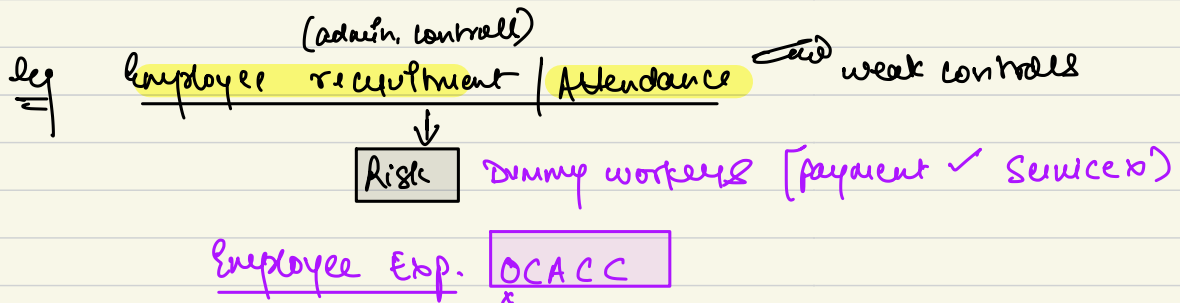 (admin. controll)
eg Employee recruitment | Attendance weak controls
↓
Risk Dummy workers [payment ✓ Service x)
Employee Exp. OCACC
x